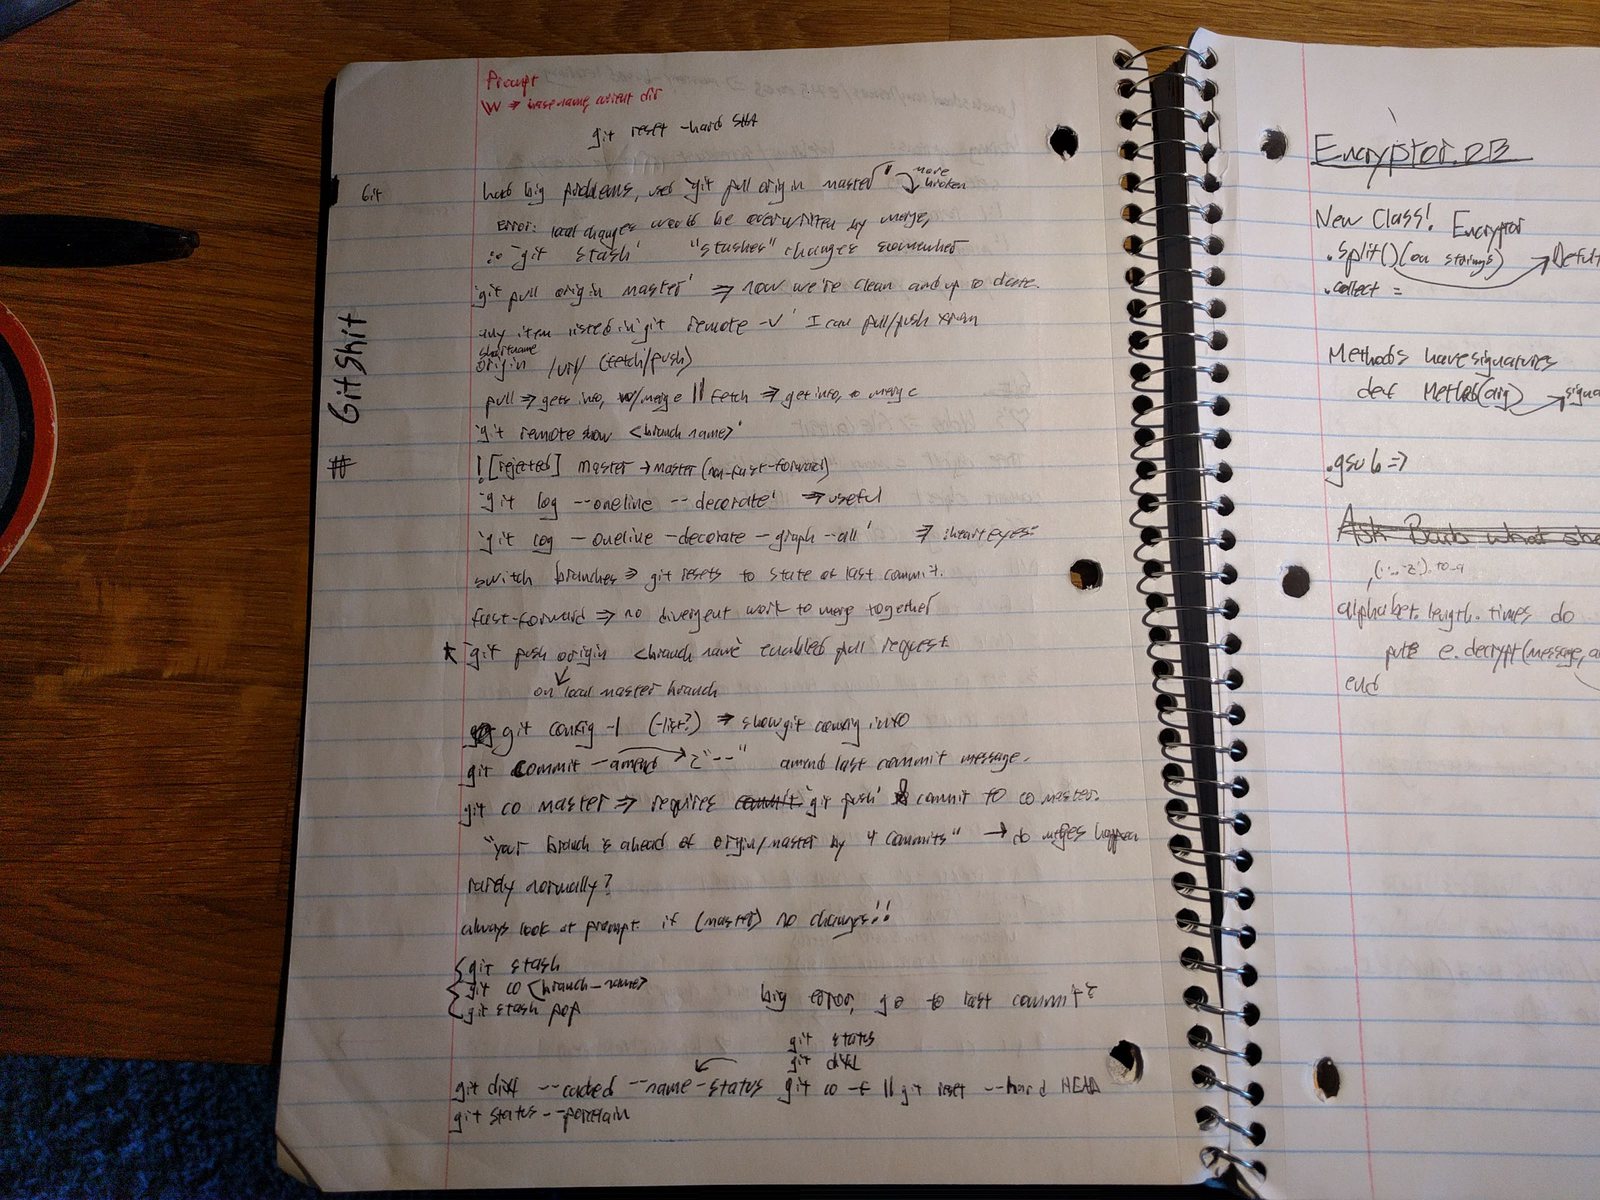 Prompt
\W → basename current dir
git reset -hard SHA
Git
had big problems, used 'git pull origin master" more broken
error: local changes would be overwritten by merge,
so 'git stash' "stashes" changes somewhere
'git pull origin master' => now we're clean and up to date.
any item listed in 'git remote -v' I can pull/push from
shortname
origin /url/ (fetch/push)
pull => gets info, w/merge || fetch => get info, no merge
'git remote show <branch name>'
Git Shit
#
! [rejected] master → master (non-fast-forward)
'git log --oneline --decorate' => useful
'git log -oneline -decorate -graph --all' => :hearteyes:
switch branches => git resets to state of last commit.
fast-forward => no divergent work to merge together
* 'git push origin <branch name' enabled pull request.
on local master branch
git config -l (-list?) => show git config info
git commit -amend "--" amend last commit message.
git co master => requires 'git push' commit to co master.
"your branch is ahead of origin/master by 4 commits" → do merges happen
rarely normally?
always look at prompt. if (master) no changes!!
{git stash
git co <branch_name>
git stash pop
big error, go to last commit?
git status
git diff
git diff --cached --name-status git co -f || git reset --hard HEAD
git status --porcelain
Encryptor.DB
New Class! Encryptor
.split()(on strings)
.collect =
Methods have signatures
def Method(arg)
.gsub =>
Ask what she
alphabet.length.times do
puts e.decrypt(message,
end